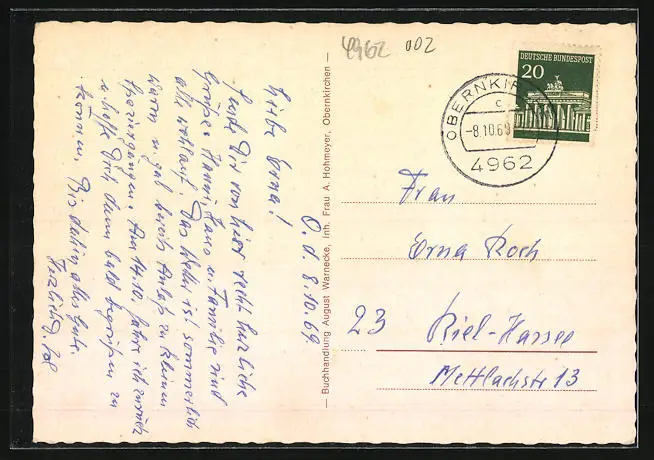 4962 002
DEUTSCHE BUNDESPOST
20
OBERNKIR
c
-8.10.69
4962
Frau
Erna Koch
23 Kiel-Hassee
Mettlachstr 13
— Buchhandlung August Warnecke, Inh. Frau A. Hohmeyer, Obernkirchen —
O. d. 8.10.69
Liebe Erna!
Sende Dir von hier recht herzliche
Grüße. Hanni, Hans u. Familie sind
alle wohlauf. Das Wetter ist sommerlich
warm u. gab bereits Anlaß zu kleinen
Spaziergängen. Am 14.10. fahre ich zurück
u. hoffe Dich dann bald begrüßen zu
können. Bis dahin alles Gute.
Herzlich D.